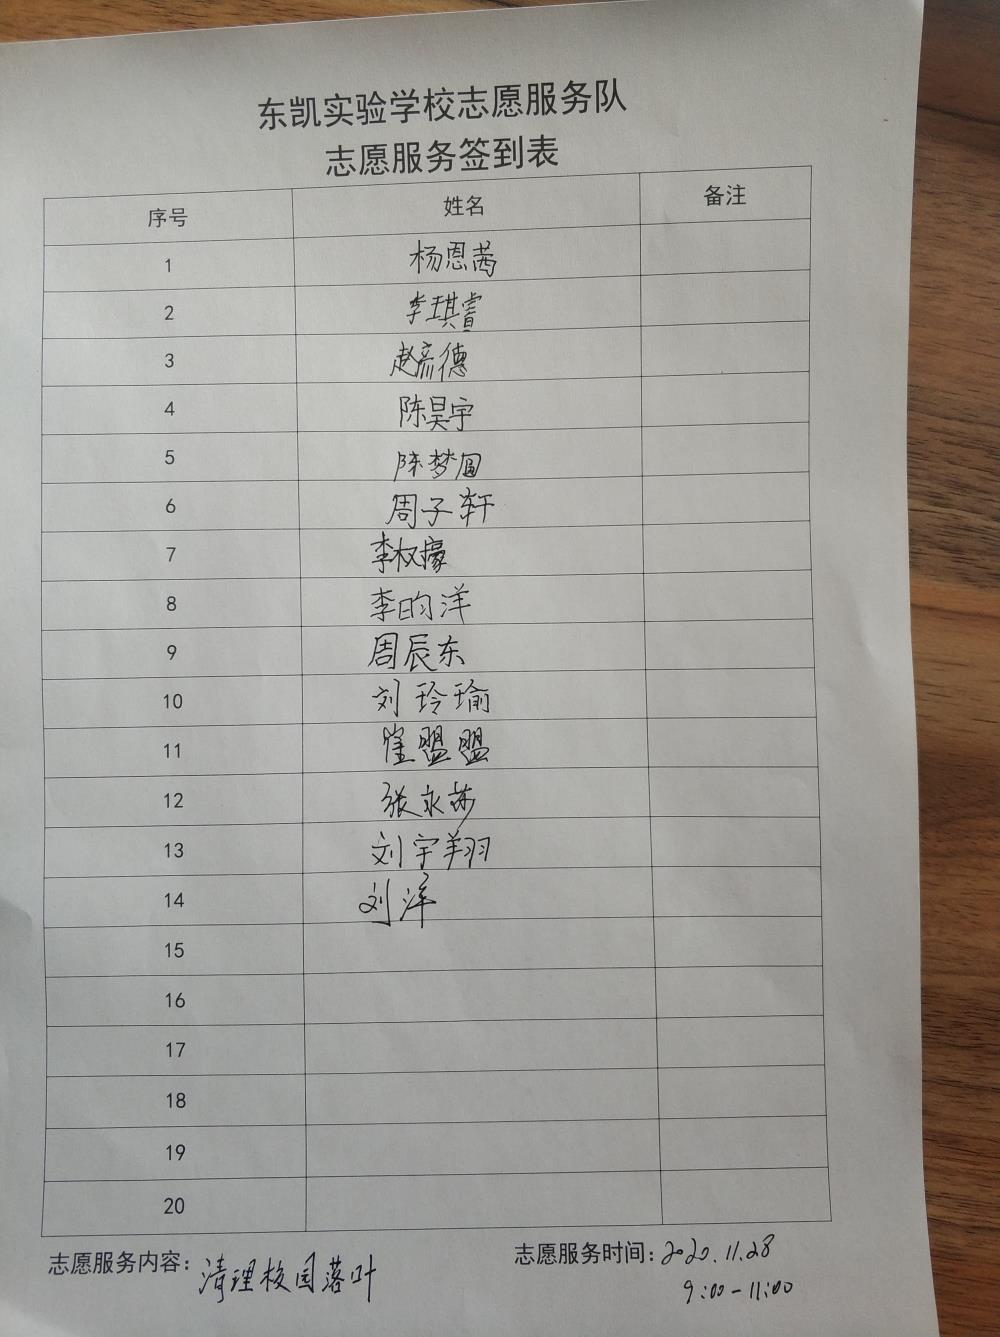 东凯实验学校志愿服务队
志愿服务签到表
序号 姓名 备注
1 杨恩茜
2 李琪睿
3 赵彦德
4 陈昊宇
5 陈梦圆
6 周子轩
7 李权
8 李昀洋
9 周辰东
10 刘玲瑜
11 崔盟盟
12 张永莎
13 刘宇翔
14 刘洋
15
16
17
18
19
20
志愿服务内容：清理校园落叶 志愿服务时间：2020.11.28
9:00-11:00